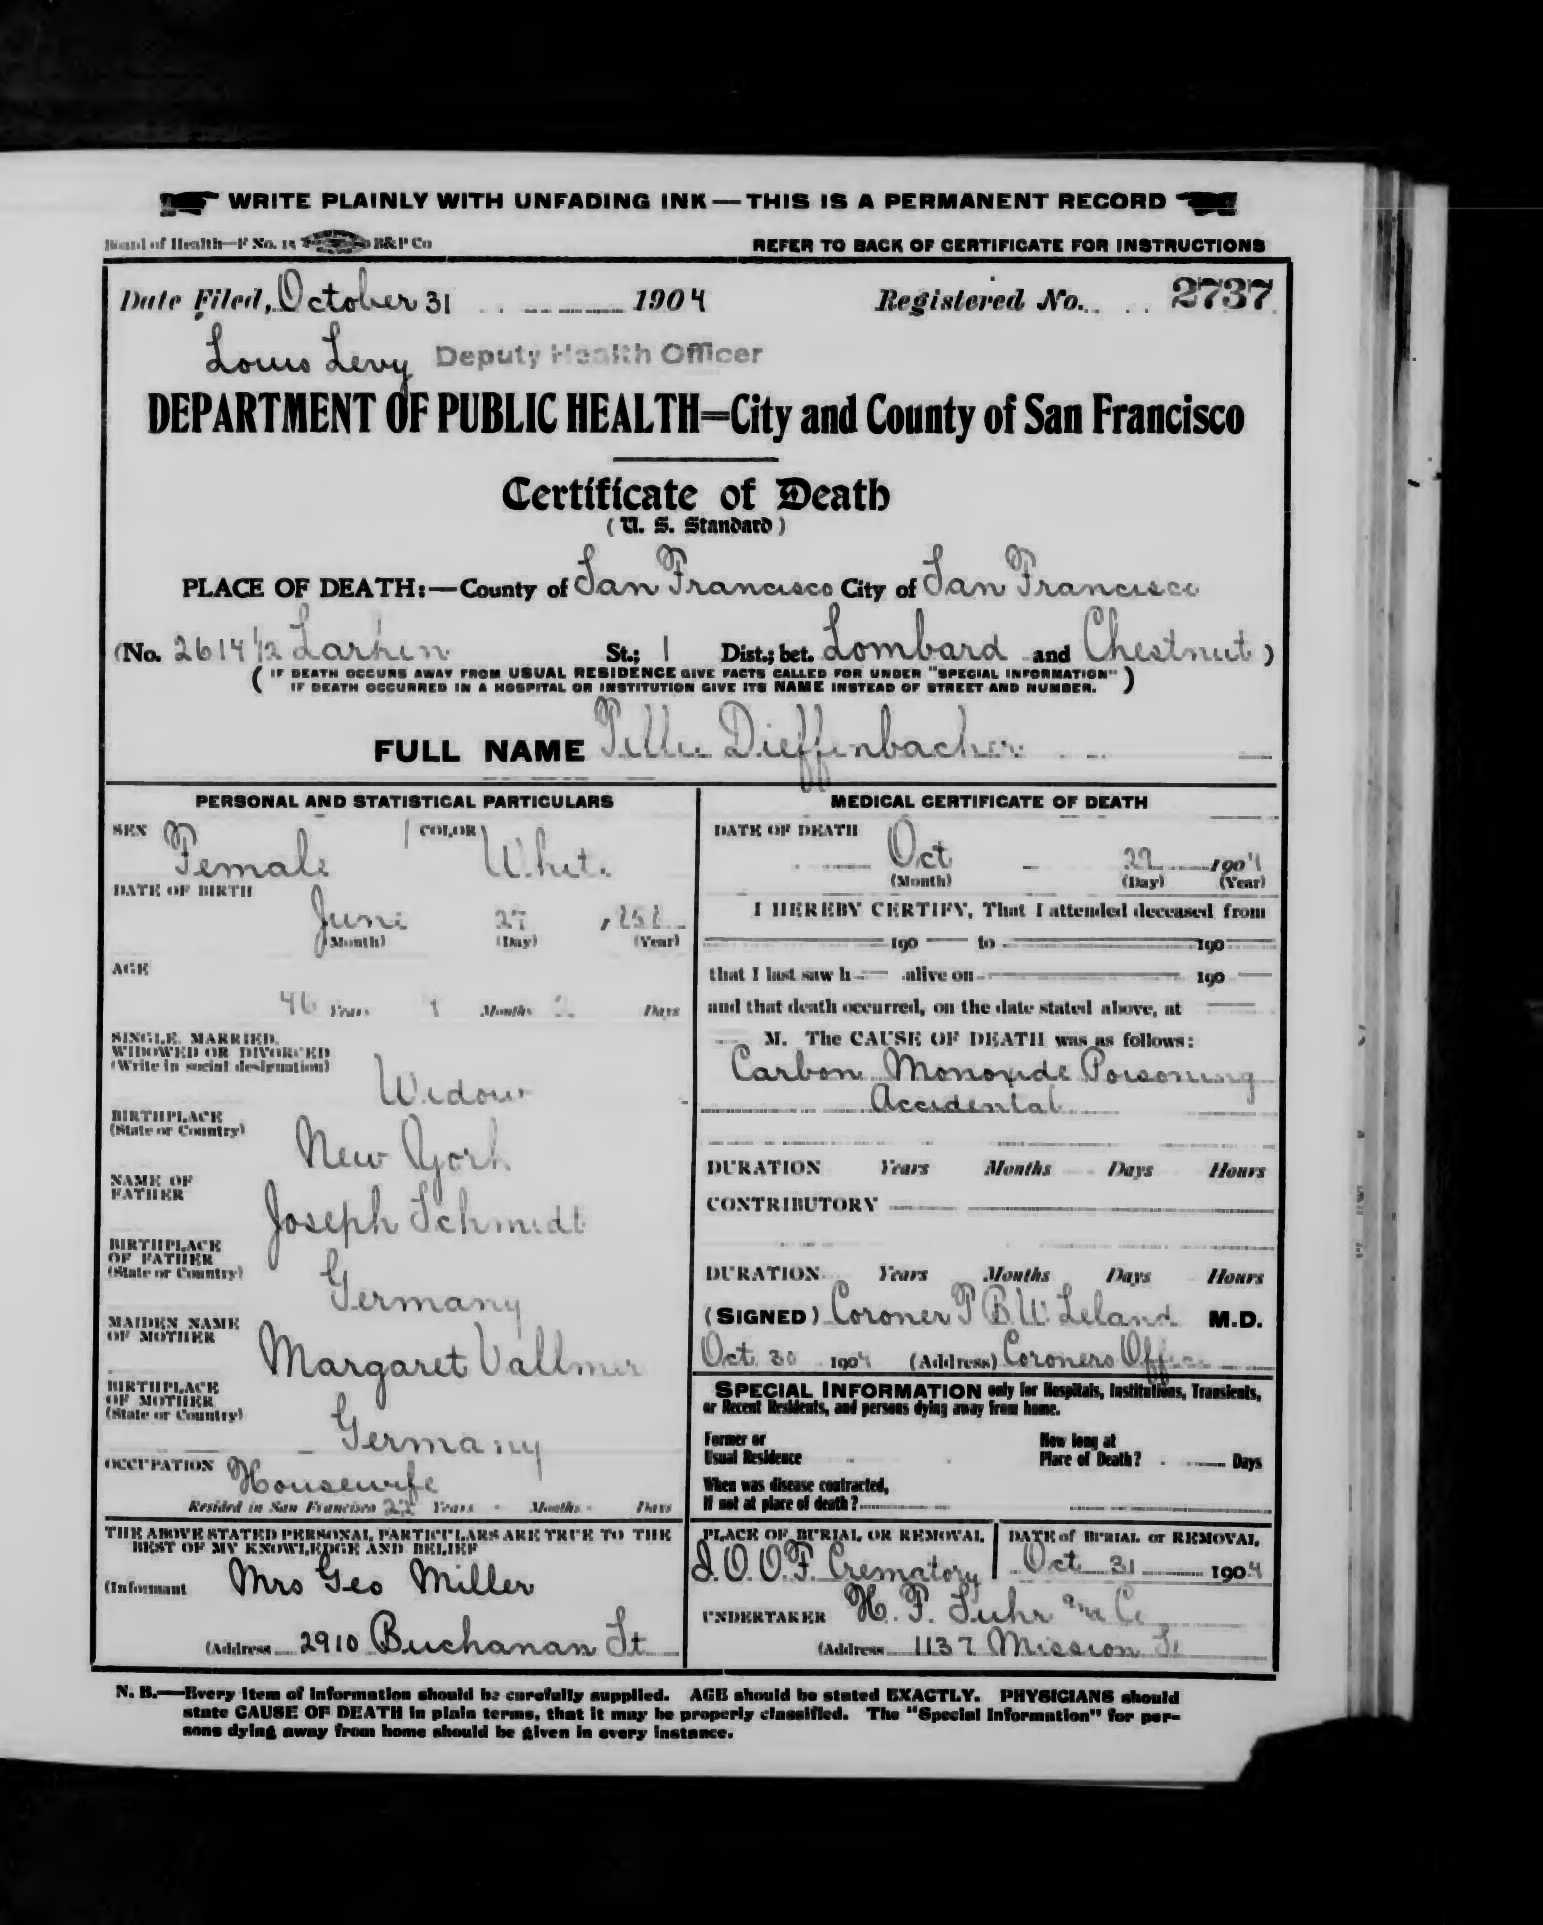 WRITE PLAINLY WITH UNFADING INK—THIS IS A PERMANENT RECORD
Board of Health—F No. 15 B&P Co
REFER TO BACK OF CERTIFICATE FOR INSTRUCTIONS
Date Filed, October 31 1904 Registered No. 2737
Louis Levy Deputy Health Officer
DEPARTMENT OF PUBLIC HEALTH=City and County of San Francisco
Certificate of Death
(U. S. Standard)
PLACE OF DEATH:—County of San Francisco City of San Francisco
(No. 2614 1/2 Larkin St.; 1 Dist.; bet. Lombard and Chestnut)
(IF DEATH OCCURS AWAY FROM USUAL RESIDENCE GIVE FACTS CALLED FOR UNDER "SPECIAL INFORMATION"
IF DEATH OCCURRED IN A HOSPITAL OR INSTITUTION GIVE ITS NAME INSTEAD OF STREET AND NUMBER.)
FULL NAME Tillie Dieffenbacher
PERSONAL AND STATISTICAL PARTICULARS
SEX Female COLOR White
DATE OF BIRTH
June 27
(Month) (Day) (Year)
AGE
46 Years Months Days
SINGLE, MARRIED,
WIDOWED OR DIVORCED
(Write in social designation)
Widow
BIRTHPLACE
(State or Country)
New York
NAME OF
FATHER
Joseph Schmidt
BIRTHPLACE
OF FATHER
(State or Country)
Germany
MAIDEN NAME
OF MOTHER
Margaret Vallmer
BIRTHPLACE
OF MOTHER
(State or Country)
Germany
OCCUPATION Housewife
Resided in San Francisco 22 Years - Months - Days
THE ABOVE STATED PERSONAL PARTICULARS ARE TRUE TO THE
BEST OF MY KNOWLEDGE AND BELIEF
(Informant Mrs Geo Miller
(Address 2910 Buchanan St
MEDICAL CERTIFICATE OF DEATH
DATE OF DEATH
Oct 29 1904
(Month) (Day) (Year)
I HEREBY CERTIFY, That I attended deceased from
190 to 190
that I last saw h alive on 190
and that death occurred, on the date stated above, at
M. The CAUSE OF DEATH was as follows:
Carbon Monoxide Poisoning
Accidental
DURATION Years Months Days Hours
CONTRIBUTORY
DURATION Years Months Days Hours
(SIGNED) Coroner T B W Leland M.D.
Oct. 30 1904 (Address) Coroners Office
SPECIAL INFORMATION only for Hospitals, Institutions, Transients,
or Recent Residents, and persons dying away from home.
Former or
Usual Residence
How long at
Place of Death? Days
When was disease contracted,
If not at place of death?
PLACE OF BURIAL OR REMOVAL
I.O.O.F. Crematory
DATE of BURIAL or REMOVAL
Oct 31 1904
UNDERTAKER H. F. Suhr and Co
(Address 1137 Mission St
N. B.—Every item of information should be carefully supplied. AGE should be stated EXACTLY. PHYSICIANS should
state CAUSE OF DEATH in plain terms, that it may be properly classified. The "Special Information" for per-
sons dying away from home should be given in every instance.